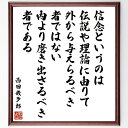 信念というのは
伝説や理論に由りて
外から与えらるべき
者ではない
内より磨き出さるべき
者である
西田幾多郎